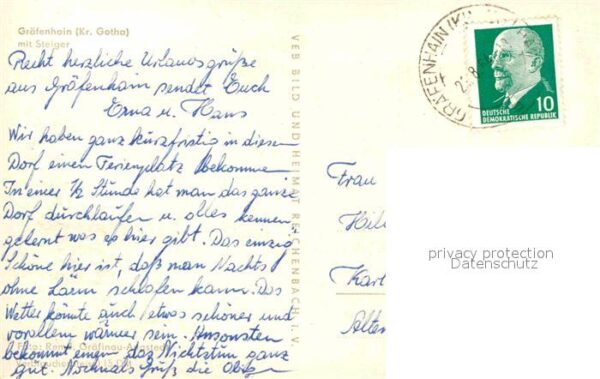 Gräfenhain (Kr. Gotha)
mit Steiger
Recht herzliche Urlaubsgrüße
aus Gräfenhain sendet Euch
Erna u. Hans
Wir haben ganz kurzfristig in diesen
Dorf einen Ferienplatz bekomme
In einer ½ Stunde hat man das ganze
Dorf durchlaufen u. alles kennen
gelernt was es hier gibt. Das einzig
Schöne hier ist, daß man Nachts
ohne Lärm schlafen kann. Das
Wetter könnte auch etwas schöner und
vorallem wärmer sein. Ansonsten
bekommt einem das Nichtstun ganz
gut. Nochmals Gruß die Obigen
Foto: Gräfinau-Angstedt
VEB BILD UND HEIMAT REICHENBACH I. V.
GRÄFENHAIN
10
DEUTSCHE
DEMOKRATISCHE REPUBLIK
Frau
Hil
Karl
Alten
privacy protection
Datenschutz